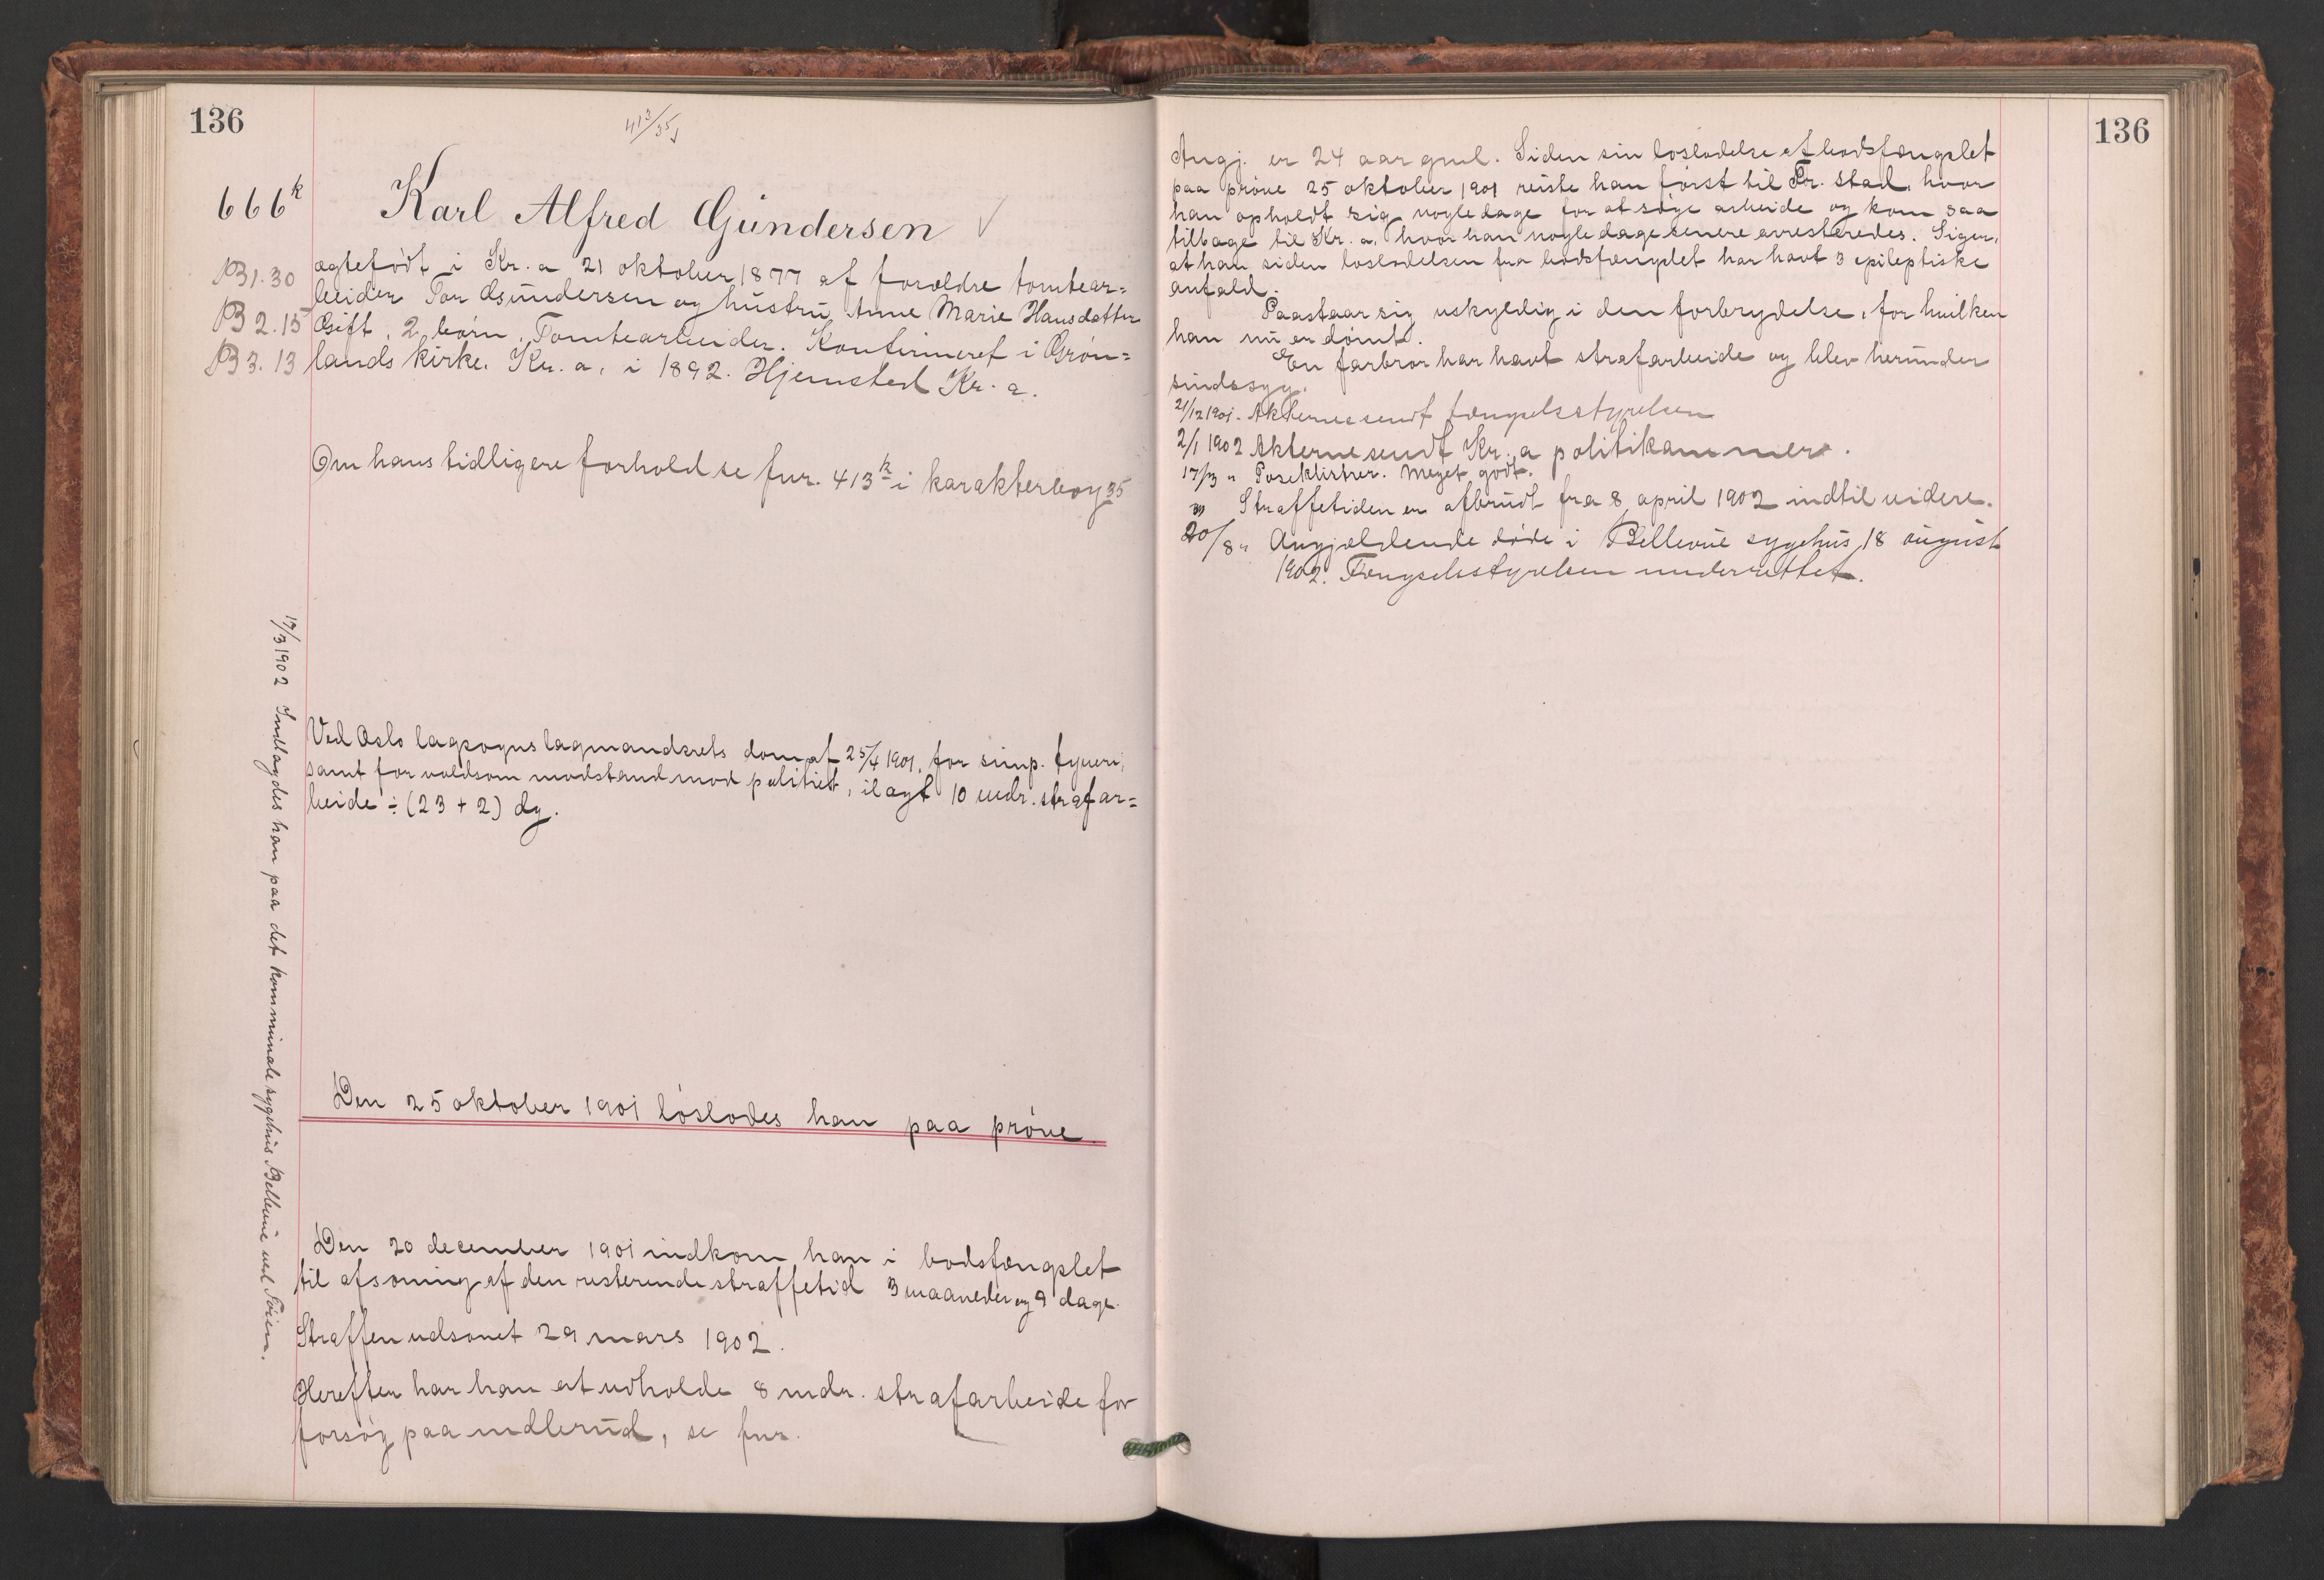 136
413/35
666k
Karl Alfred Gundersen ✓
P31.30
P32.15
P33.13
ægtefødt i Kr.a 21 oktober 1877 af forældre tomtear=
beider Tor Gundersen og hustru Anne Marie Hansdatter
Gift, 2 børn. Tomtearbeider. Konfirmeret i Grøn=
lands kirke, Kr.a, i 1892. Hjemsted Kr.a.
Om hans tidligere forhold se fnr. 413k i karakterbog 35
Ved Oslo lagsogns lagmandsrets dom af 25/4 1901, for simp. tyveri,
samt for voldsom modstand mod politiet, ilagt 10 mdr. strafar=
beide ÷ (23 + 2) dg.
Den 25 oktober 1901 løslodes han paa prøve.
Den 20 december 1901 indkom han i bodsfængslet
til afsoning af den resterende straffetid 3 maaneder og 9 dage.
Straffen udsonet 29 mars 1902.
Herefter har han at udholde 8 mdr. strafarbeide for
forsøg paa indbrud, se fnr.
17/3 1902 Indlagdes han paa det kommunale sygehus Bellevue ved Tøien.
136
Angj. er 24 aar gml. Siden sin løsladelse af bodsfængslet
paa prøve 25 oktober 1901 reiste han først til Fr.stad, hvor
han opholdt sig nogle dage for at søge arbeide og kom saa
tilbage til Kr.a, hvor han nogle dage senere arresteredes. Siger,
at han siden løsladelsen fra bodsfængslet har havt 3 epileptiske
anfald.
Paastaar sig uskyldig i den forbrydelse, for hvilken
han nu er dømt.
En farbror har havt strafarbeide og blev herunder
sindssyg.
21/12 1901. Akterne sendt fængselsstyrelsen
2/1 1902 Akterne sendt Kr.a politikammer.
17/3 " Poseklistrer. Meget godt.
" Straffetiden er afbrudt fra 8 april 1902 indtil videre.
20/8 " Angjældende døde i Bellevue sygehus 18 august
1902. Fængselsstyrelsen underrettet.